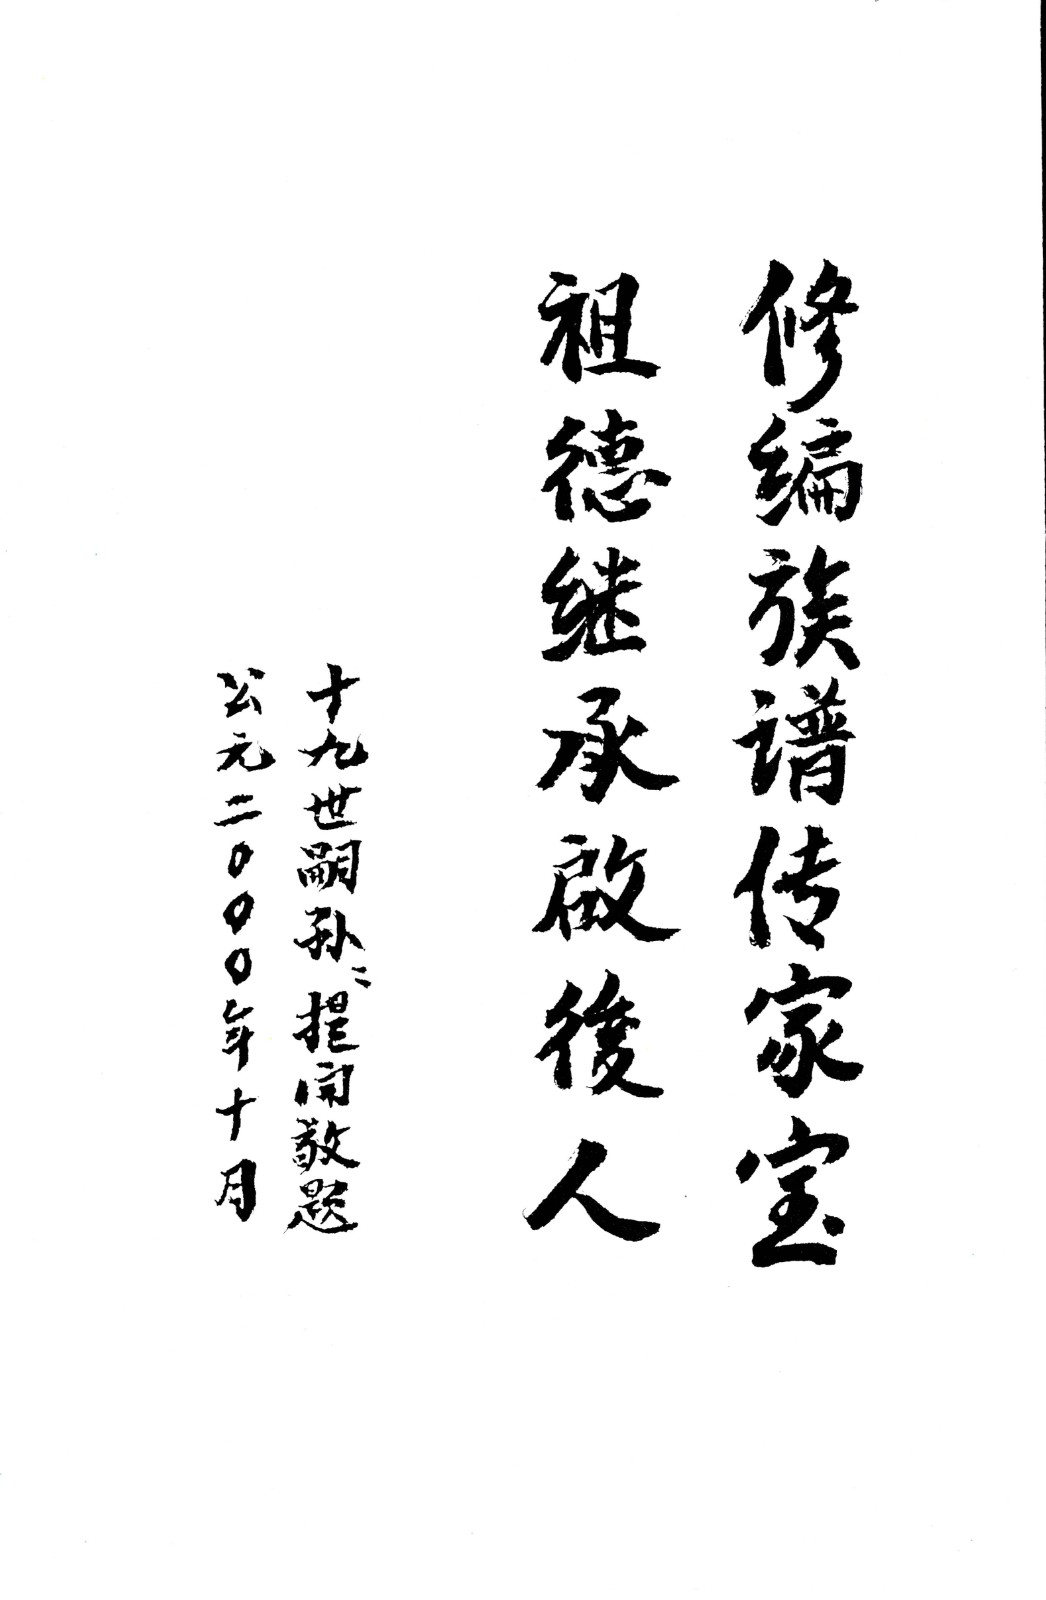 修编族谱传家宝
祖德继承啟後人
十九世嗣孙〻提闻敬题
公元二000年十月